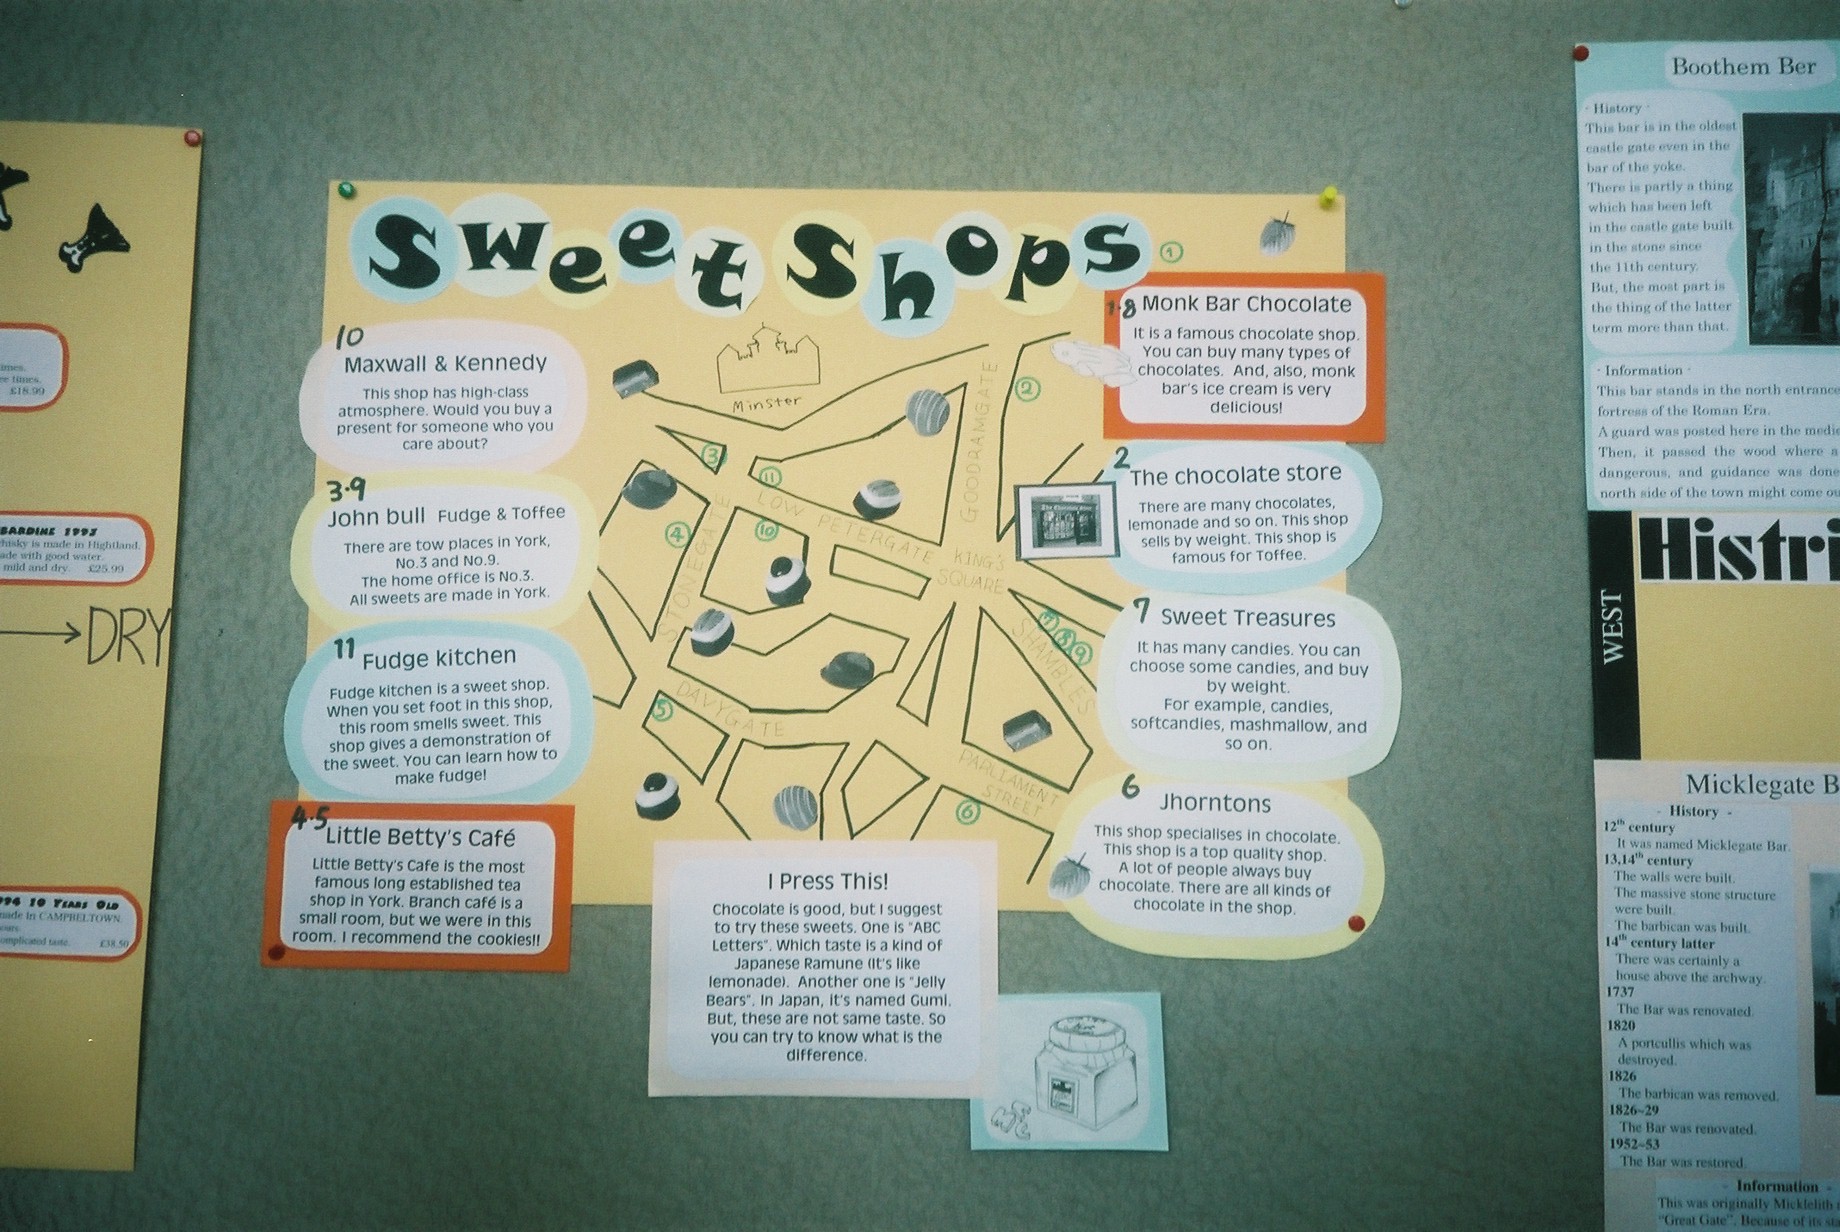 Sweet Shops
10
Maxwall & Kennedy
This shop has high-class
atmosphere. Would you buy a
present for someone who you
care about?
3·9
John bull Fudge & Toffee
There are tow places in York,
No.3 and No.9.
The home office is No.3.
All sweets are made in York.
11
Fudge kitchen
Fudge kitchen is a sweet shop.
When you set foot in this shop,
this room smells sweet. This
shop gives a demonstration of
the sweet. You can learn how to
make fudge!
4·5
Little Betty's Café
Little Betty's Cafe is the most
famous long established tea
shop in York. Branch café is a
small room, but we were in this
room. I recommend the cookies!!
Minster
1
2
3
11
4
10
5
7
8
9
6
GOODRAMGATE
LOW PETERGATE
KING'S
SQUARE
STONEGATE
SHAMBLES
DAVYGATE
PARLIAMENT
STREET
1·8
Monk Bar Chocolate
It is a famous chocolate shop.
You can buy many types of
chocolates. And, also, monk
bar's ice cream is very
delicious!
2
The chocolate store
There are many chocolates,
lemonade and so on. This shop
sells by weight. This shop is
famous for Toffee.
7
Sweet Treasures
It has many candies. You can
choose some candies, and buy
by weight.
For example, candies,
softcandies, mashmallow, and
so on.
6
Jhorntons
This shop specialises in chocolate.
This shop is a top quality shop.
A lot of people always buy
chocolate. There are all kinds of
chocolate in the shop.
I Press This!
Chocolate is good, but I suggest
to try these sweets. One is "ABC
Letters". Which taste is a kind of
Japanese Ramune (It's like
lemonade). Another one is "Jelly
Bears". In Japan, it's named Gumi.
But, these are not same taste. So
you can try to know what is the
difference.
times.
ee times.
£18.99
BARDINE 1993
whisky is made in Hightland.
made with good water.
mild and dry. £25.99
DRY
1994 10 YEARS OLD
made in CAMPBELTOWN.
omplicated taste. £38.50
Boothem Ber
- History -
This bar is in the oldest
castle gate even in the
bar of the yoke.
There is partly a thing
which has been left
in the castle gate built
in the stone since
the 11th century.
But, the most part is
the thing of the latter
term more than that.
- Information -
This bar stands in the north entrance
fortress of the Roman Era.
A guard was posted here in the medie
Then, it passed the wood where a
dangerous, and guidance was done
north side of the town might come ou
Histri
WEST
Micklegate B
- History -
12th century
It was named Micklegate Bar.
13,14th century
The walls were built.
The massive stone structure
were built.
The barbican was built.
14th century latter
There was certainly a
house above the archway.
1737
The Bar was renovated.
1820
A portcullis which was
destroyed.
1826
The barbican was removed.
1826~29
The Bar was renovated.
1952~53
The Bar was restored.
- Information -
This was originally Micklelith
"Great Gate". Because of its